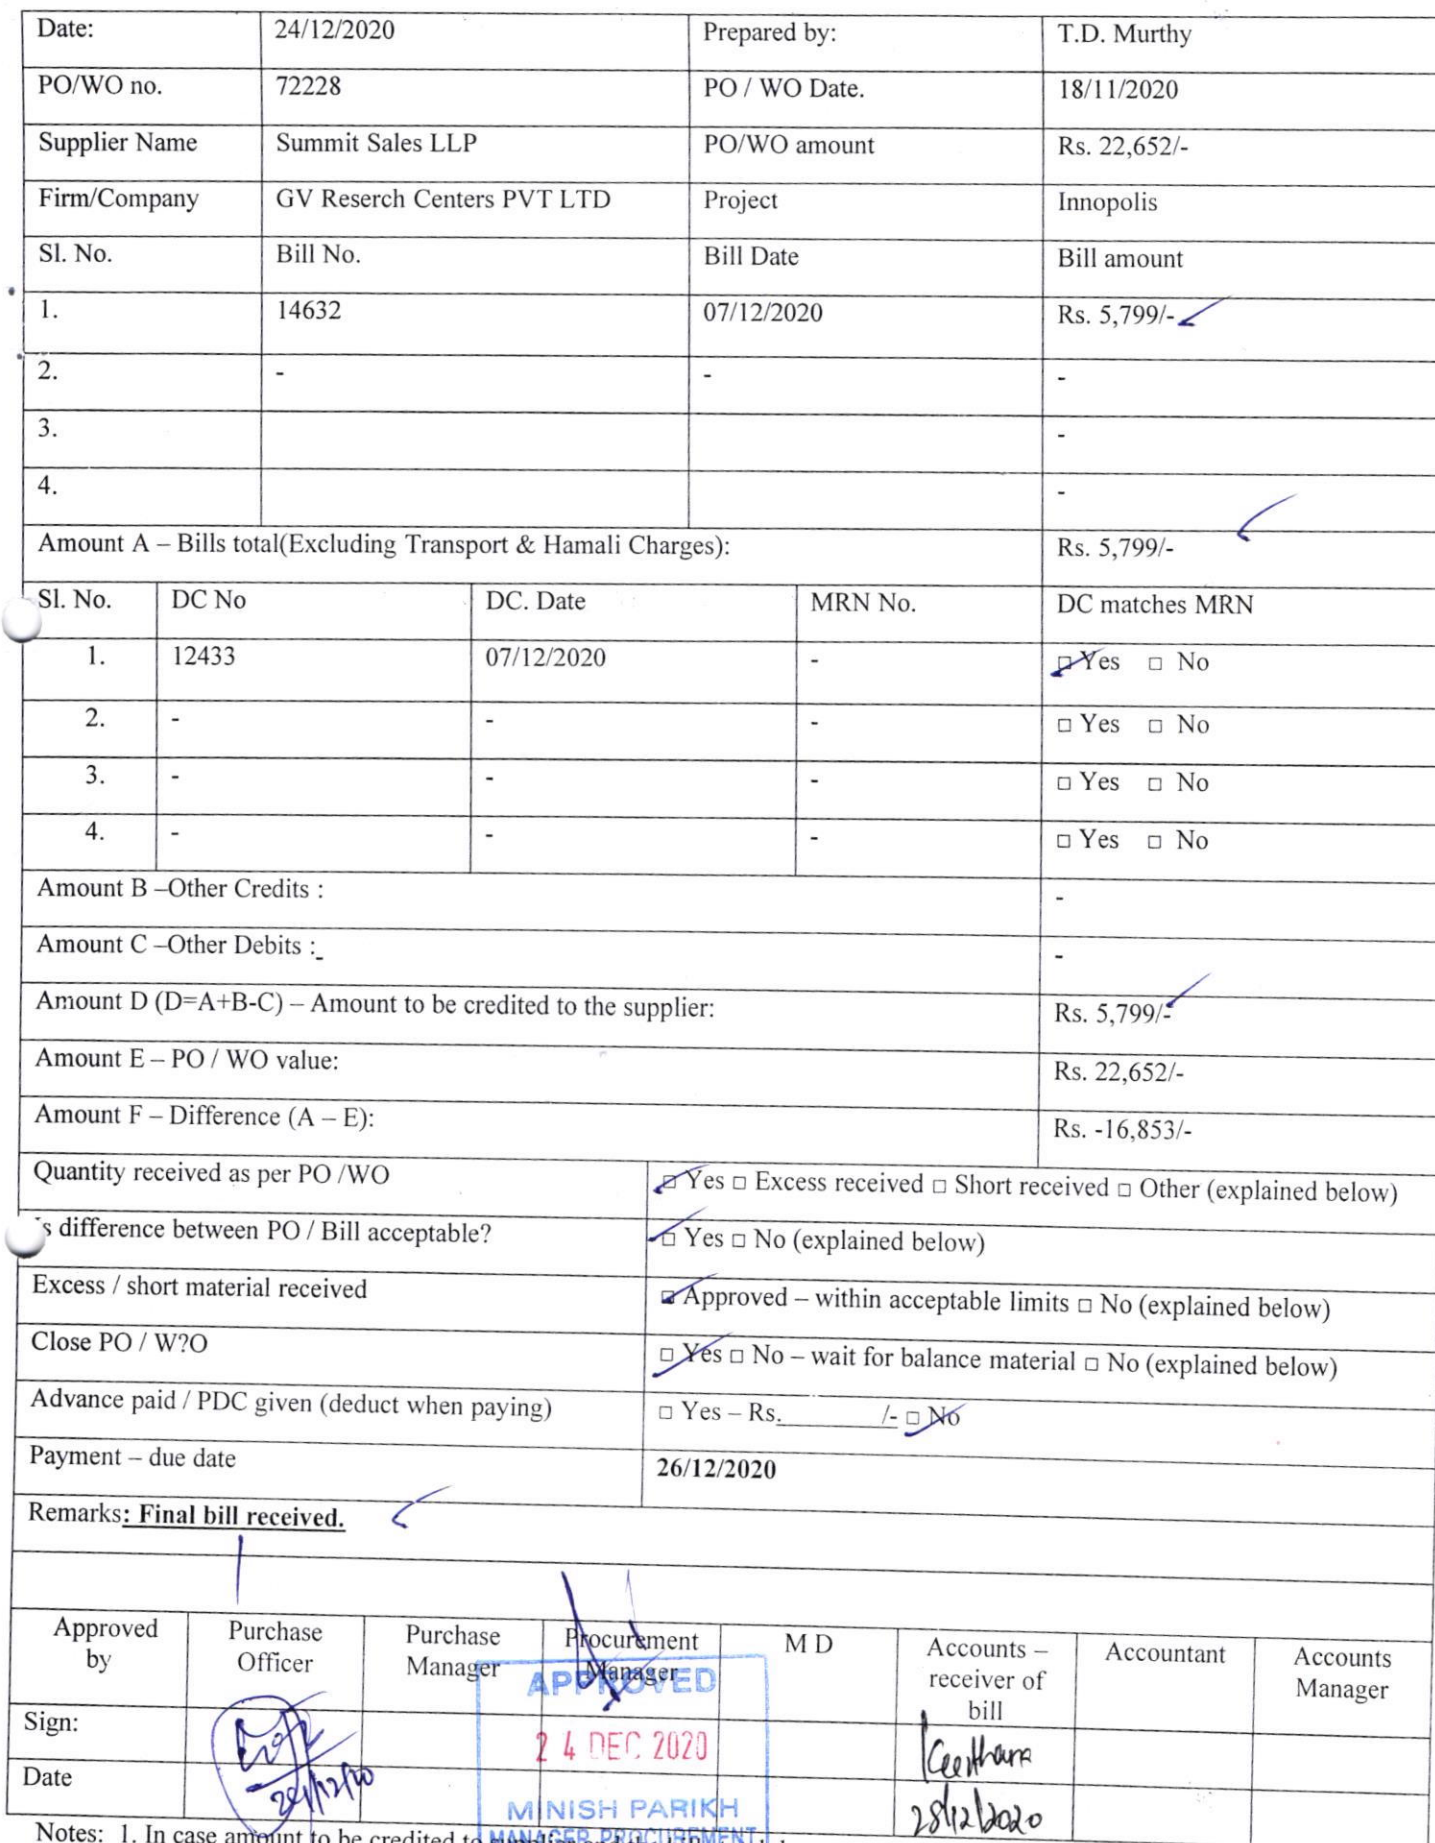 Date: 24/12/2020 Prepared by: T.D. Murthy
PO/WO no. 72228 PO / WO Date. 18/11/2020
Supplier Name Summit Sales LLP PO/WO amount Rs. 22,652/-
Firm/Company GV Reserch Centers PVT LTD Project Innopolis
Sl. No. Bill No. Bill Date Bill amount
1. 14632 07/12/2020 Rs. 5,799/-
2. - - -
3. -
4. -
Amount A – Bills total(Excluding Transport & Hamali Charges): Rs. 5,799/-
Sl. No. DC No DC. Date MRN No. DC matches MRN
1. 12433 07/12/2020 - □ Yes □ No
2. - - - □ Yes □ No
3. - - - □ Yes □ No
4. - - - □ Yes □ No
Amount B –Other Credits : -
Amount C –Other Debits :- -
Amount D (D=A+B-C) – Amount to be credited to the supplier: Rs. 5,799/-
Amount E – PO / WO value: Rs. 22,652/-
Amount F – Difference (A – E): Rs. -16,853/-
Quantity received as per PO /WO □ Yes □ Excess received □ Short received □ Other (explained below)
Is difference between PO / Bill acceptable? □ Yes □ No (explained below)
Excess / short material received □ Approved – within acceptable limits □ No (explained below)
Close PO / W?O □ Yes □ No – wait for balance material □ No (explained below)
Advance paid / PDC given (deduct when paying) □ Yes – Rs.________/- □ No
Payment – due date 26/12/2020
Remarks: Final bill received.
Approved by Purchase Officer Purchase Manager Procurement Manager M D Accounts – receiver of bill Accountant Accounts Manager
APPROVED
Sign: 24 DEC 2020 Keerthana
Date MINISH PARIKH 28/12/2020
MANAGER PROCUREMENT
Notes: 1. In case amount to be credited to